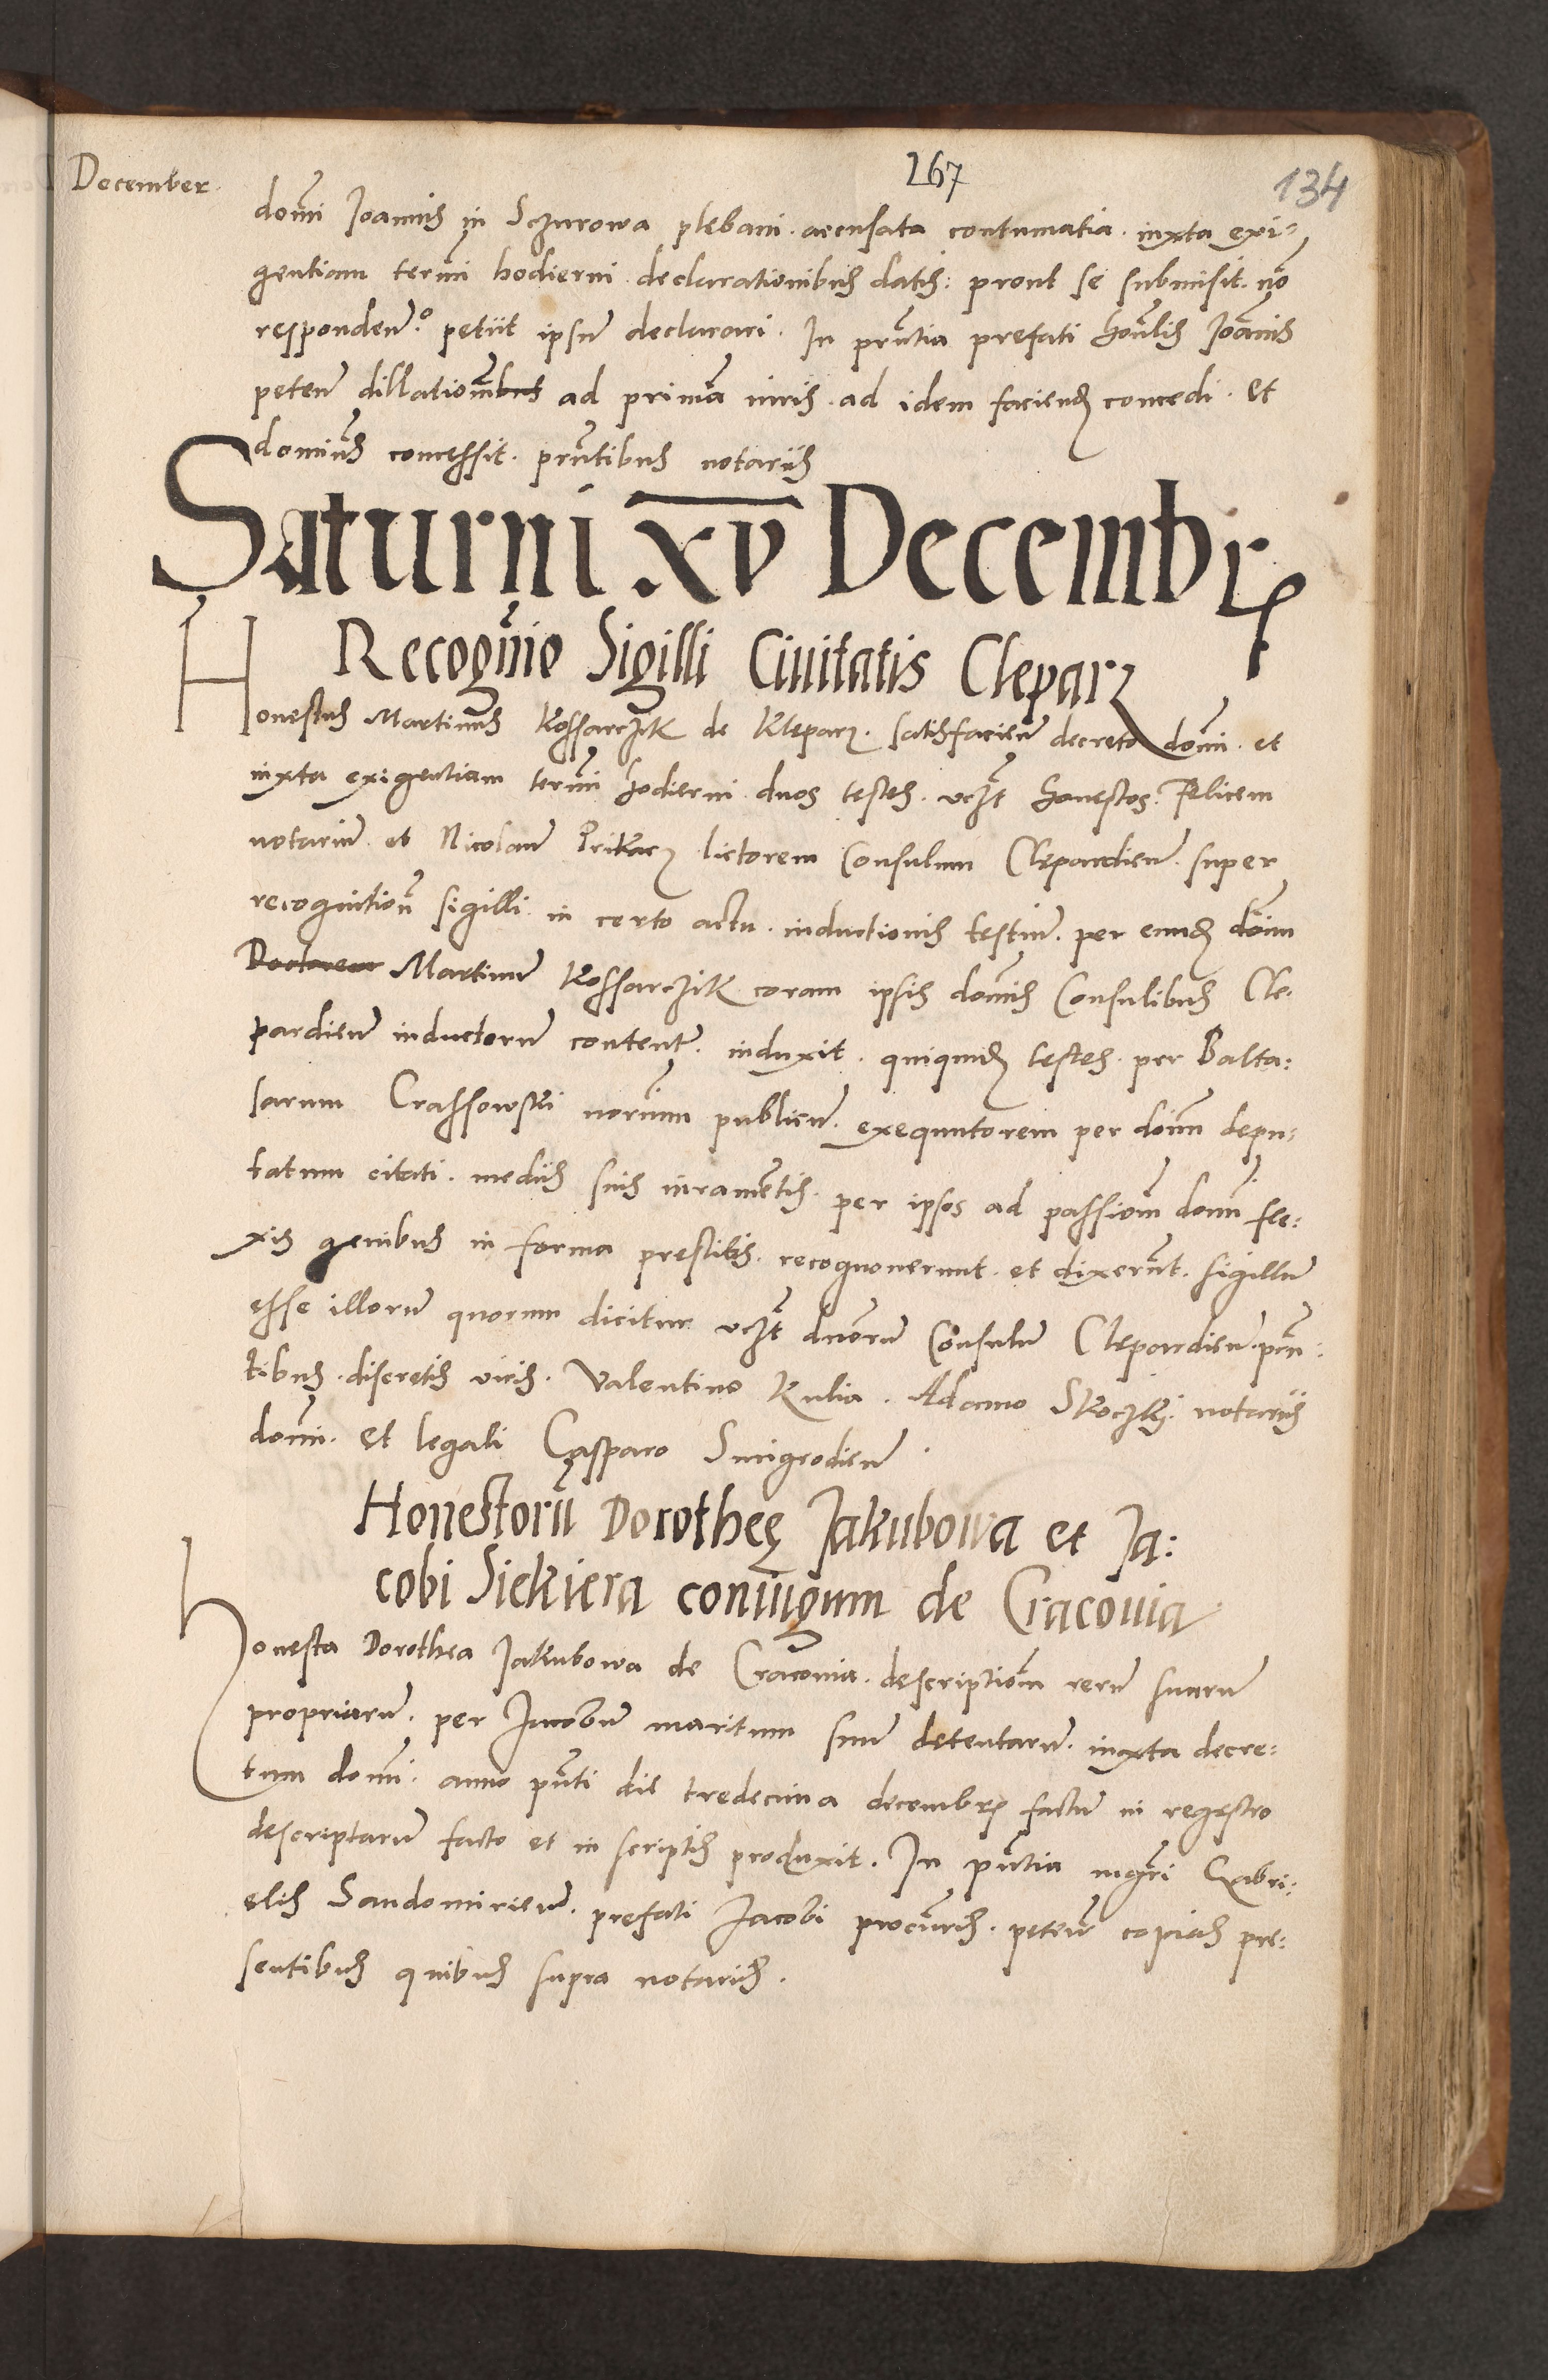 December
267
134
domī Joannis in Sczurowa plebani. accusata contumatia. iuxta exi-
gentiam termī hodierni declarationibus datis: prout se submisit. nō
responden̄.º petiit ipsū declarari. In prn̄tia prefati hon̄lis Joānis
peten̄ dillationē ad primā iuris. ad idem faciend concedi. et
domin̄s concessit. prn̄tibus notariis
Saturni xv Decembr
Recogn̄io Sigilli Ciuitatis Cleparz
Honestus Martin̄s Kossarczik de Kleparz. satisfacien̄ decreto domī. et
iuxta exigentiam termī hodierni duos testes. vczt honestos. Felicem
notariū et Nicolaū Pritkacz lictorem Consulum Clepardien̄. super
recognitionē sigilli in certo actu. inductionis testiū. per eund dōm̄
Doctorem Martinū Kossarczik coram ipsis domīs Consulibus Cle:
pardien̄ inductorū content̄. induxit. quiquid testes. per Balta:
sarum Crassowski notriūm publicū. exequutorem per doīnū depu:
tatum citati. mediis suis iuramētis. per ipsos ad passionē domī fle:
xis genibus in forma prestitis. recognouerunt. et dixerūt. sigillū
esse illorū quorum dicitur vczt duorū Consulū Clepardien̄. prn̄:
tibus. discretis viris. Valentino Kulia. Adamo Skoczki. notariis
domī. et legali Casparo Smigrodien̄.
Honestorū Dorotheę Jakubowa et Ja:
cobi Siekiera coniūgum de Cracouia
Honesta Dorothea Jakubowa de Cracouia. descriptionē rerū suarū
propriarū. per Jacobū maritum suū detentarū. iuxta decre:
tum domī. anno pn̄ti die tredecima decembr factū in regestro
descriptarū facto et in scriptis produxit. In pn̄tia mgr̄i Gabri:
elis Sandomirien̄. prefati Jacobi procur̄is. peten̄ copias pre:
sentibus quibus supra notariis.